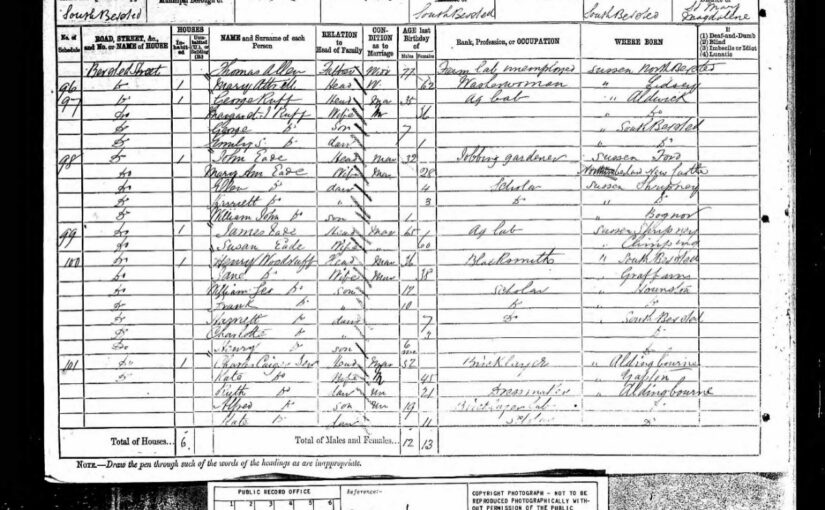 South Bersted South Bersted South Bersted St Mary Magdalene
No. of Schedule ROAD, STREET, &c., and No. or NAME of HOUSE HOUSES Inhabited Uninhabited (U.), or Building (B.) NAME and Surname of each Person RELATION to Head of Family CONDITION as to Marriage AGE last Birthday of Males Females Rank, Profession, or OCCUPATION WHERE BORN If (1) Deaf-and-Dumb (2) Blind (3) Imbecile or Idiot (4) Lunatic
Bersted Street Thomas Allen Father 77 Farm Lab unemployed Sussex North Bersted
96 Do 1 Mary Head W 62 Washerwoman " Sidlesy
97 Do 1 George Ruff Head Mar 35 Ag Lab " Aldwick
Do Margaret J Ruff Wife M 36 " Do
Do George Do Son 7 " South Bersted
Do Emily S Do daur 1 " Do
98 Do 1 John Eade Head Mar 32 Jobbing gardener Sussex Ford
Do Mary Ann Eade Wife Mar 28 Northumberland New Castle
Do Ellen Do daur 4 Scholar Sussex Shripney
Do Harriett Do " 3 Do " Do
Do William John Do son 1 " Bognor
99 Do 1 James Eade Head Mar 65 Ag Lab Sussex Shripney
Do Susan Eade Wife " 60 "
100 Do 1 Henry Woodruff Head Mar 36 Blacksmith " South Bersted
Do Jane Do Wife Mar 38 " Graffham
Do William Geo Do son 12 Scholar "
Do Frank Do " 10 Do " Do
Do Harriett Do daur 7 Do " South Bersted
Do Charlotte Do "
Do Henry Do son 6 mo Do
101 Do 1 Charles Head Mar 52 Bricklayer " Aldingbourne
Do Kate Do Wife M 45 " Yapton
Do Ruth Do daur Un 21 Dressmaker " Aldingbourne
Alfred Do son Un 19 Bricklayer Lab
Kate Do daur 11 Do
Total of Houses... 6 Total of Males and Females.. 12 13
NOTE.—Draw the pen through such of the words of the headings as are inappropriate.
PUBLIC RECORD OFFICE
1 2 3 4 5 6
Reference:-
COPYRIGHT PHOTOGRAPH - NOT TO BE
REPRODUCED PHOTOGRAPHICALLY WITH-
OUT PERMISSION OF THE PUBLIC